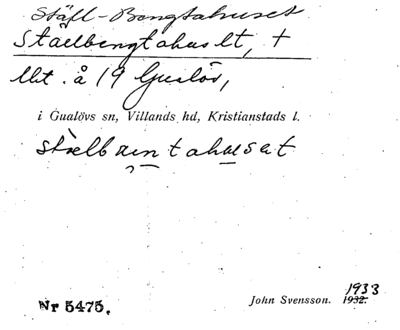 Ståfl-Bengtahuset
Stáelbengtahuslt, +
lht. å 19 Gualöv,
i Gualövs sn, Villands hd, Kristianstads l.
stælbæntahuset
John Svensson. 1932. 1933
Nr 5475.